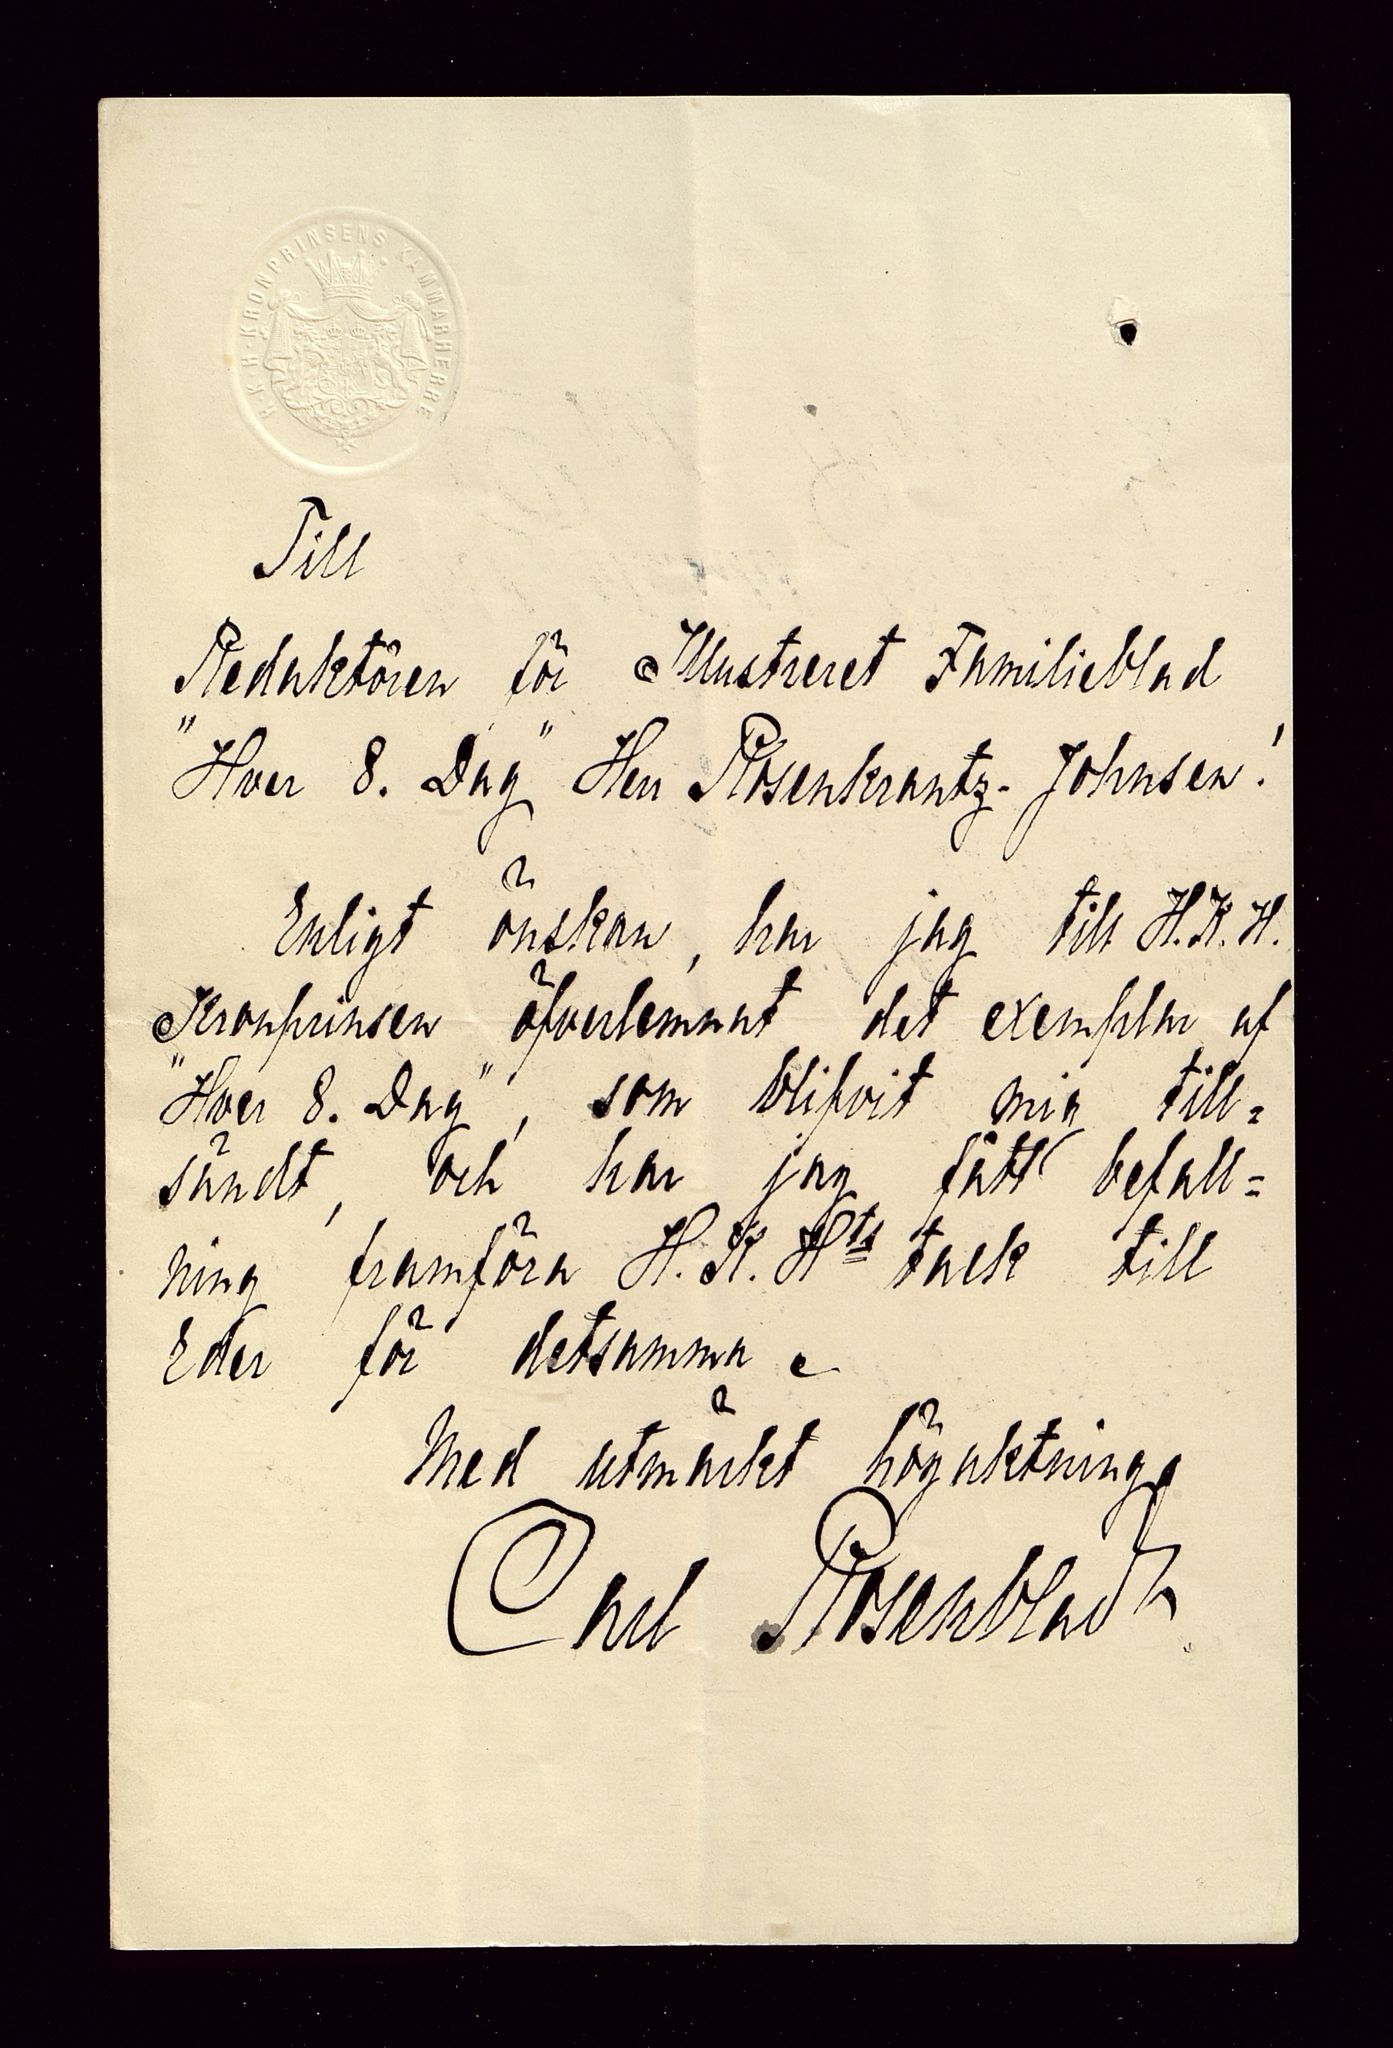 H.K.H. KRONPRINSENS KAMMARHERRE
Till
Redaktören för Illustreret Familieblad
"Hver 8. Dag" Herr Rosenkrantz-Johnsen!
Enligt önskan, har jag till H.K.H.
Kronprinsen öfverlemnat det exemplar af
"Hver 8. Dag", som blifvit mig till=
sändt, och har jag fått befall=
ning framföra H.K.Hts tack till
Eder för detsamma.
Med utmärkt högaktning
Carl Rosenblad